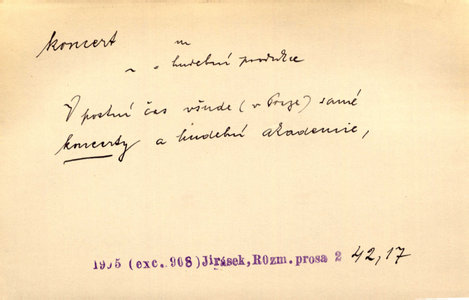 koncert m
~ o hudební produkce
V postní čas všude (v Praze) samé
koncerty a hudební akademie,
1905 (exc. 908) Jirásek, Rozm. prosa 2 42,17